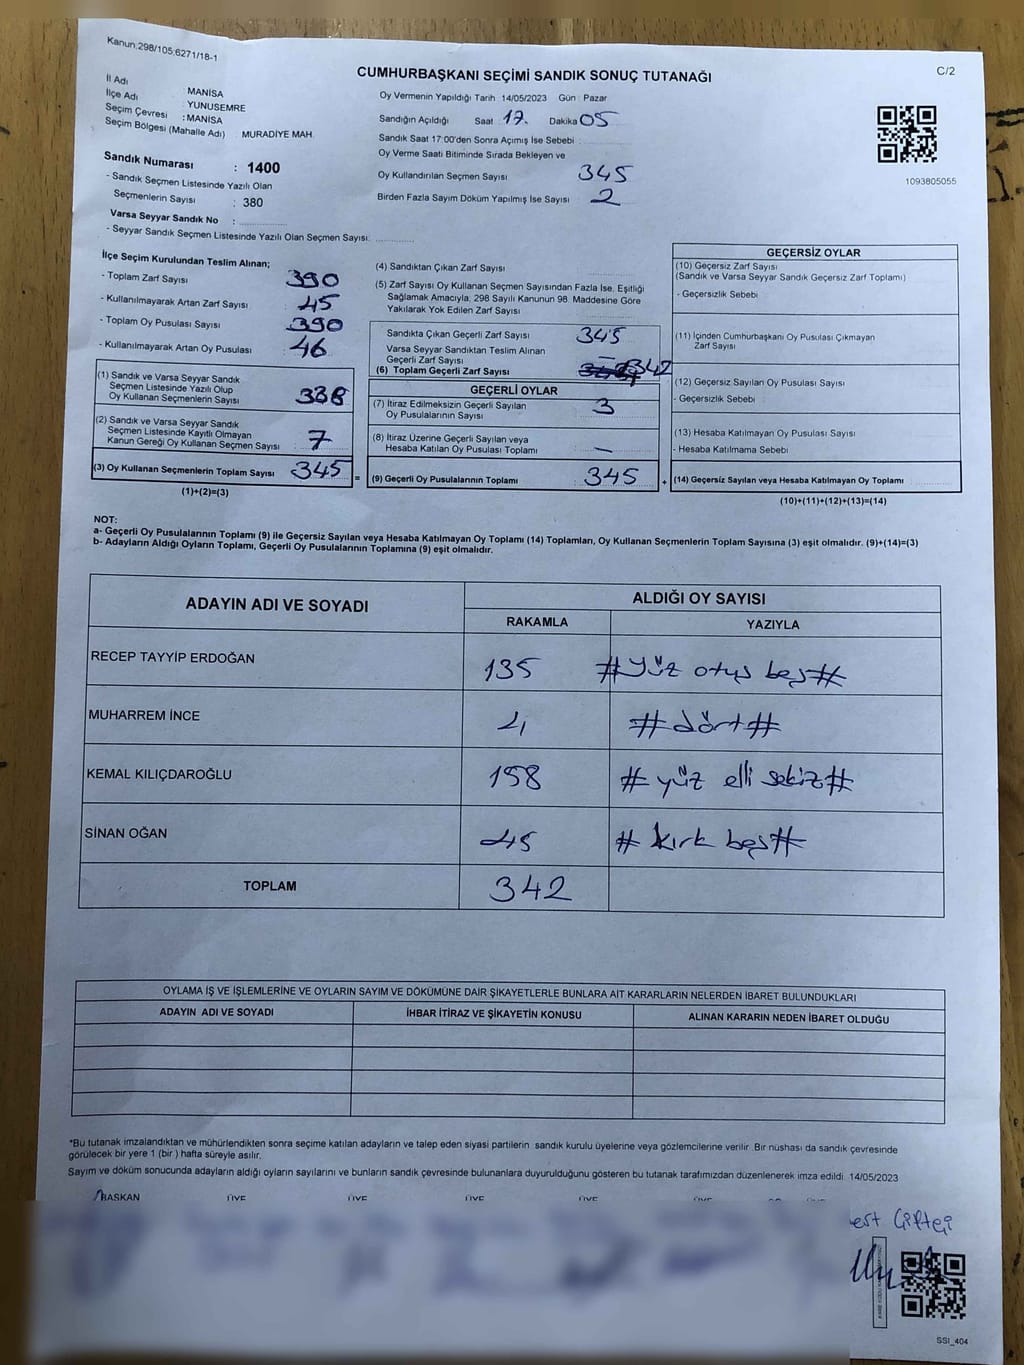 Kanun:298/105;6271/18-1
C/2
CUMHURBAŞKANI SEÇİMİ SANDIK SONUÇ TUTANAĞI
İl Adı MANİSA
İlçe Adı YUNUSEMRE
Seçim Çevresi :MANİSA
Seçim Bölgesi (Mahalle Adı) MURADİYE MAH.
Sandık Numarası : 1400
- Sandık Seçmen Listesinde Yazılı Olan
Seçmenlerin Sayısı : 380
Varsa Seyyar Sandık No :
- Seyyar Sandık Seçmen Listesinde Yazılı Olan Seçmen Sayısı:
Oy Vermenin Yapıldığı Tarih 14/05/2023 Gün : Pazar
Sandığın Açıldığı Saat 17. Dakika 05
Sandık Saat 17:00'den Sonra Açımış İse Sebebi :
Oy Verme Saati Bitiminde Sırada Bekleyen ve
Oy Kullandırılan Seçmen Sayısı 345
Birden Fazla Sayım Döküm Yapılmış İse Sayısı 2
1093805055
İlçe Seçim Kurulundan Teslim Alınan;
- Toplam Zarf Sayısı : 390
- Kullanılmayarak Artan Zarf Sayısı : 45
- Toplam Oy Pusulası Sayısı : 390
- Kullanılmayarak Artan Oy Pusulası : 46
(1) Sandık ve Varsa Seyyar Sandık
Seçmen Listesinde Yazılı Olup
Oy Kullanan Seçmenlerin Sayısı : 338
(2) Sandık ve Varsa Seyyar Sandık
Seçmen Listesinde Kayıtlı Olmayan
Kanun Gereği Oy Kullanan Seçmen Sayısı : 7
(3) Oy Kullanan Seçmenlerin Toplam Sayısı 345 =
(1)+(2)=(3)
(4) Sandıktan Çıkan Zarf Sayısı
(5) Zarf Sayısı Oy Kullanan Seçmen Sayısından Fazla İse, Eşitliği
Sağlamak Amacıyla; 298 Sayılı Kanunun 98. Maddesine Göre
Yakılarak Yok Edilen Zarf Sayısı
Sandıkta Çıkan Geçerli Zarf Sayısı 345
Varsa Seyyar Sandıktan Teslim Alınan
Geçerli Zarf Sayısı –
(6) Toplam Geçerli Zarf Sayısı 342
GEÇERLİ OYLAR
(7) İtiraz Edilmeksizin Geçerli Sayılan
Oy Pusulalarının Sayısı : 3
(8) İtiraz Üzerine Geçerli Sayılan veya
Hesaba Katılan Oy Pusulası Toplamı : –
(9) Geçerli Oy Pusulalarının Toplamı : 345 +
GEÇERSİZ OYLAR
(10) Geçersiz Zarf Sayısı
(Sandık ve Varsa Seyyar Sandık Geçersiz Zarf Toplamı)
- Geçersizlik Sebebi
(11) İçinden Cumhurbaşkanı Oy Pusulası Çıkmayan
Zarf Sayısı
(12) Geçersiz Sayılan Oy Pusulası Sayısı
- Geçersizlik Sebebi
(13) Hesaba Katılmayan Oy Pusulası Sayısı
- Hesaba Katılmama Sebebi
(14) Geçersiz Sayılan veya Hesaba Katılmayan Oy Toplamı
(10)+(11)+(12)+(13)=(14)
NOT:
a- Geçerli Oy Pusulalarının Toplamı (9) ile Geçersiz Sayılan veya Hesaba Katılmayan Oy Toplamı (14) Toplamları, Oy Kullanan Seçmenlerin Toplam Sayısına (3) eşit olmalıdır. (9)+(14)=(3)
b- Adayların Aldığı Oyların Toplamı, Geçerli Oy Pusulalarının Toplamına (9) eşit olmalıdır.
ADAYIN ADI VE SOYADI ALDIĞI OY SAYISI
RAKAMLA YAZIYLA
RECEP TAYYİP ERDOĞAN 135 #yüz otuz beş#
MUHARREM İNCE 4 #dört#
KEMAL KILIÇDAROĞLU 158 #yüz elli sekiz#
SİNAN OĞAN 45 #kırk beş#
TOPLAM 342
OYLAMA İŞ VE İŞLEMLERİNE VE OYLARIN SAYIM VE DÖKÜMÜNE DAİR ŞİKAYETLERLE BUNLARA AİT KARARLARIN NELERDEN İBARET BULUNDUKLARI
ADAYIN ADI VE SOYADI İHBAR İTİRAZ VE ŞİKAYETİN KONUSU ALINAN KARARIN NEDEN İBARET OLDUĞU
*Bu tutanak imzalandıktan ve mühürlendikten sonra seçime katılan adayların ve talep eden siyasi partilerin sandık kurulu üyelerine veya gözlemcilerine verilir. Bir nüshası da sandık çevresinde
görülecek bir yere 1 (bir ) hafta süreyle asılır.
Sayım ve döküm sonucunda adayların aldığı oyların sayılarını ve bunların sandık çevresinde bulunanlara duyurulduğunu gösteren bu tutanak tarafımızdan düzenlenerek imza edildi. 14/05/2023
BAŞKAN ÜYE ÜYE ÜYE ÜYE ÜYE
Çiftçi
SSI_404